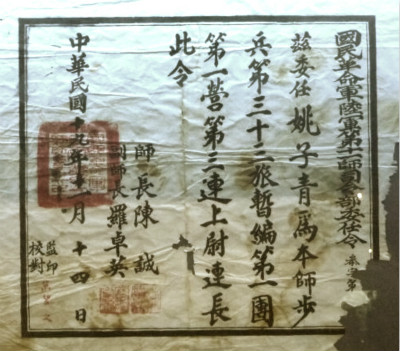 國民革命軍陸軍第十一師司令部委任令
參字第
茲委任姚子青為本師步
兵第三十三旅暫編第一團
第一營第三連上尉連長
此令
師長陳誠
副師長羅卓英
中華民國十九年十一月十四日
監印
校對